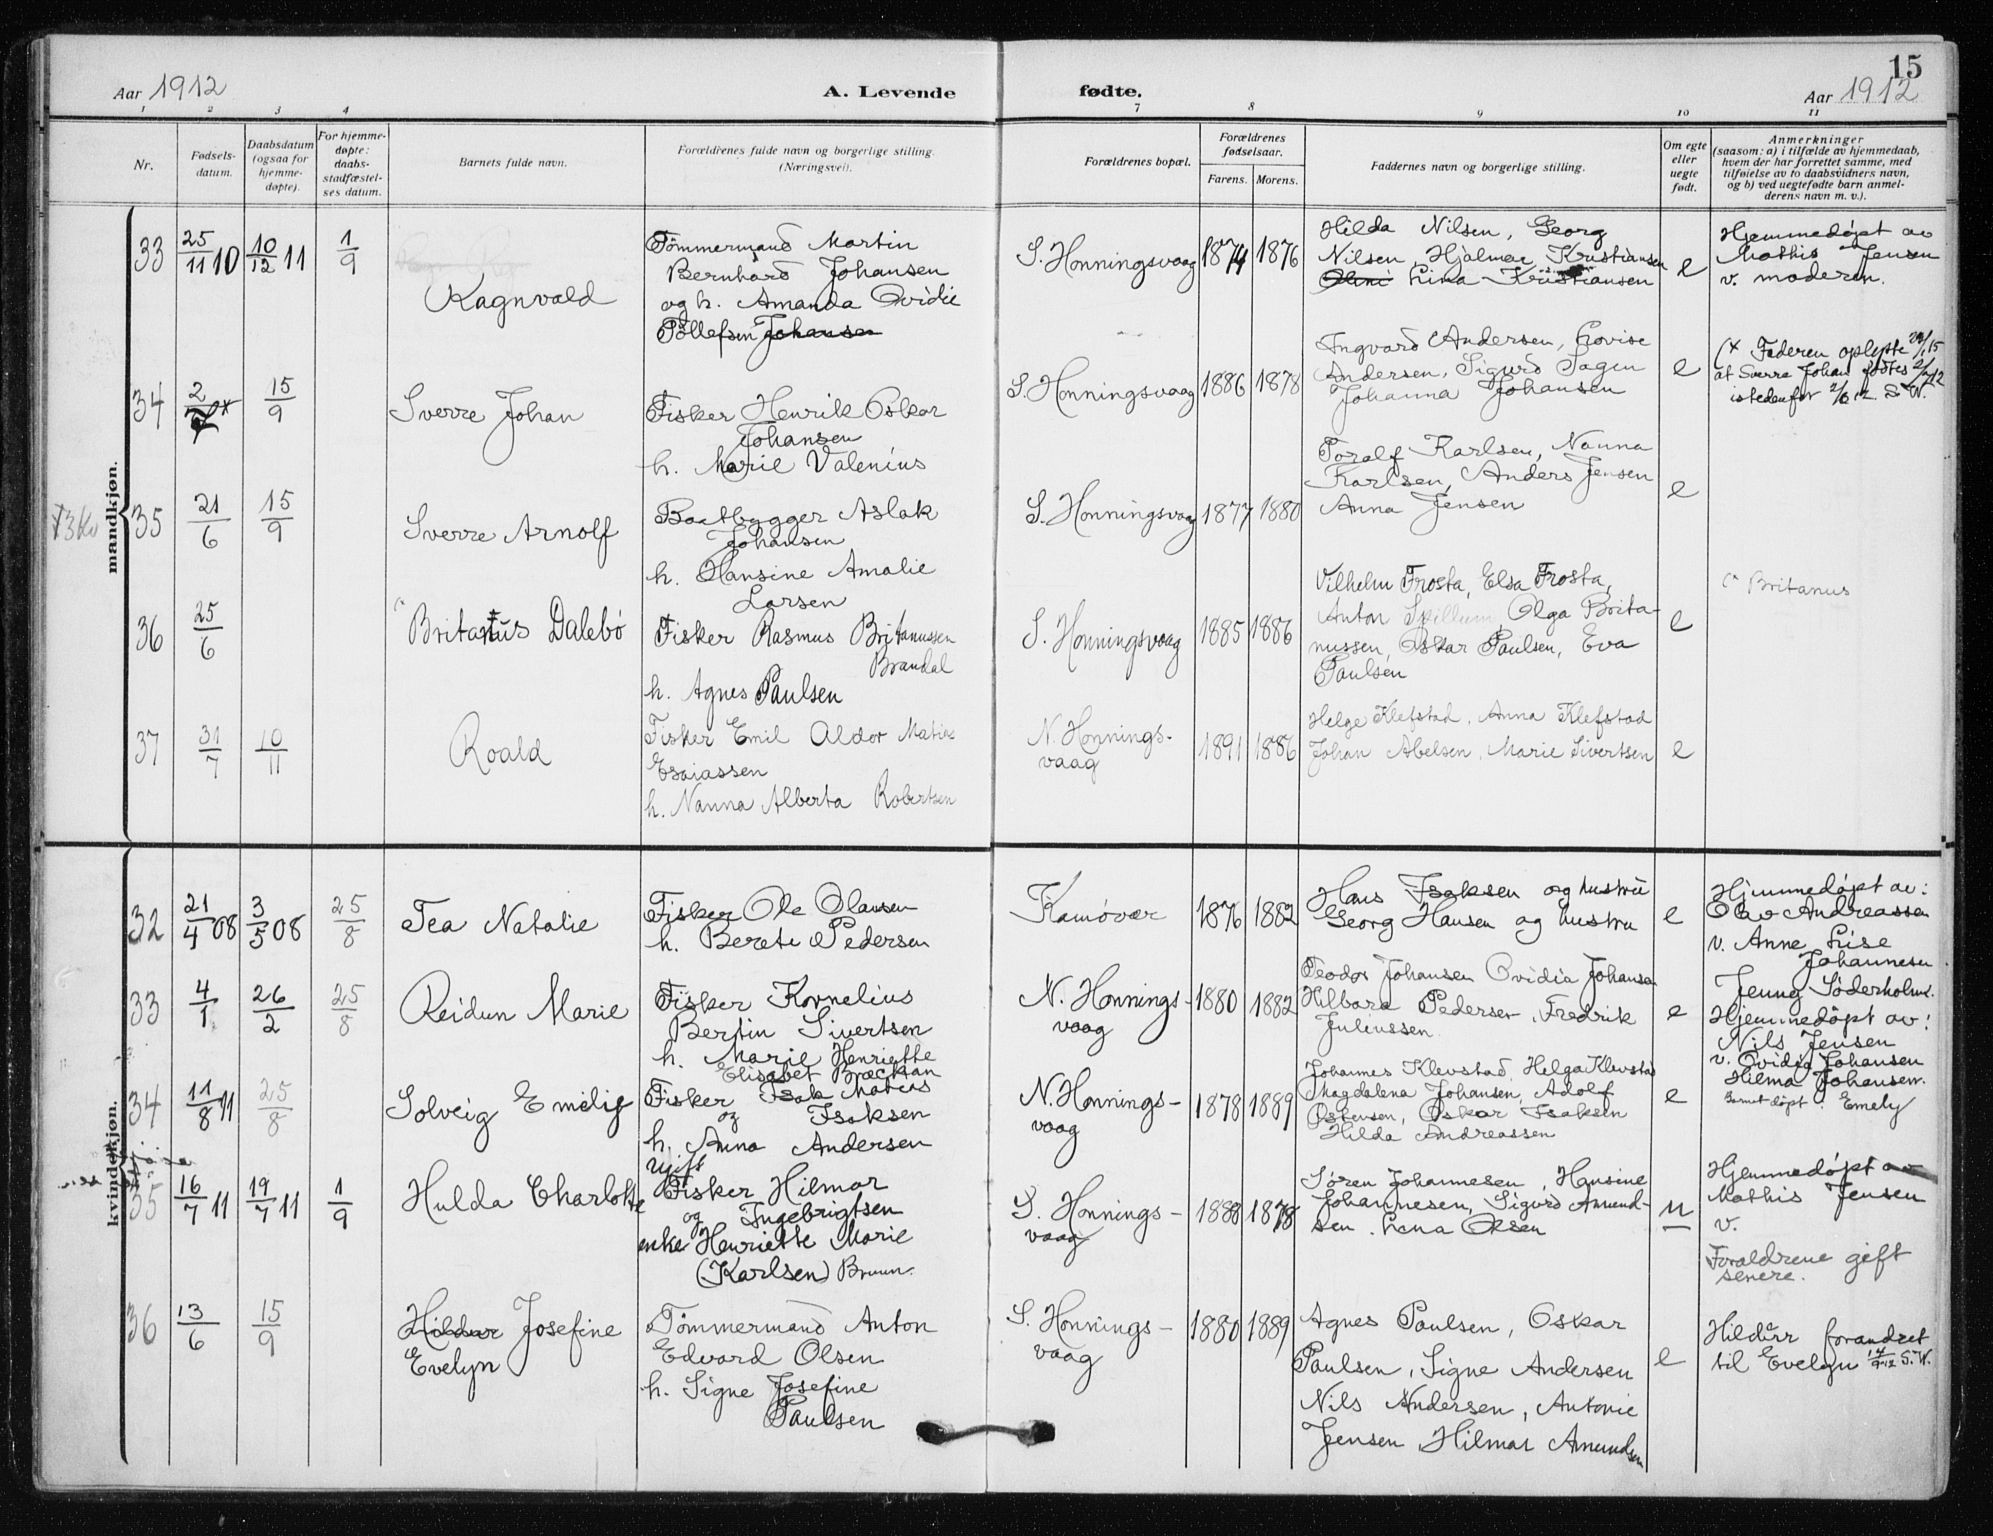 15
Aar 1912
A. Levende fødte.
Aar 1912
1 2 3 4 7 8 9 10 11
Nr.
Fødsels-
datum.
Daabsdatum
(ogsaa for
hjemme-
døpte).
For hjemme-
døpte:
daabs-
stadfæstel-
ses datum.
Barnets fulde navn.
Forældrenes fulde navn og borgerlige stilling.
(Næringsvei).
Forældrenes bopæl.
Forældrenes
fødselsaar.
Farens. Morens.
Faddernes navn og borgerlige stilling.
Om egte
eller
uegte
født.
Anmerkninger
(saasom: a) i tilfælde av hjemmedaab,
hvem der har forrettet samme, med
tilføielse av to daabsvidners navn,
og b) ved uegtefødte barn anmel-
derens navn m. v.).
mandkjøn.
33 25/11 10 10/12 11 1/9
Ragnvald
Tömmermand Martin
Bernhard Johansen
og h. Amanda Ovidie
Tollefsen Johansen
S. Honningsvaag 1874 1876
Hilda Nilsen, Georg
Nilsen, Hjalmar Kristiansen
Lina Kristiansen
e
Hjemmedøpt av
Mathis Jensen
v. moderen.
34 2/7 x 15/9
Sverre Johan
Fisker Henrik Oskar
Johansen
h. Marie Valenius
S. Honningsvaag 1886 1878
Ingvard Andersen, Lovise
Andersen, Sigurd Sagen
Johanna Johansen
e
(x Faderen oplyste 15
at Sverre Johan fødtes 2/7 12
istedenfor 2/6 12. S. W.
35 21/6 15/9
Sverre Arnolf
Baatbygger Aslak
Johansen
h. Hansine Amalie
Larsen
S. Honningsvaag 1877 1880
Toralf Karlsen, Nanna
Karlsen, Anders Jensen
Anna Jensen
e
36 25/6
Britanus Dalebø
Fisker Rasmus Britanussen
Brandal
h. Agnes Paulsen
S. Honningsvaag 1885 1886
Vilhelm Frosta, Elsa Frosta,
Anton Spillum, Olga Brita-
nussen, Oskar Paulsen, Eva
Paulsen
e
Britanus
37 31/7 10/11
Roald
Fisker Emil Aldor Matias
Esaiassen
h. Nanna Alberta Robertsen
N. Honnings-
vaag
1891 1886
Helge Klefstad, Anna Klefstad
Johan Abelsen, Marie Sivertsen
e
kvindekjøn.
32 21/4 08 3/5 08 25/8
Tea Natalie
Fisker Ole Olausen
h. Berete Pedersen
Kamøvær 1876 1882
Hans Isaksen og hustru
Georg Hansen og hustru
e
Hjemmedøpt av:
Olav Andreassen
v. Anne Lise
Johannesen
Jenny Söderholm.
33 4/1 26/2 25/8
Reidun Marie
Fisker Kornelius
Bertin Sivertsen
h. Marie Henriette
Elisabet Bræckan
N. Honnings-
vaag
1880 1882
Teodor Johansen Ovidia Johansen
Hilbara Pedersen, Fredrik
Juliussen
e
Hjemmedöpt av:
Nils Jensen
v. Ovidia Johansen
Hilma Johansen.
34 11/8 11 25/8
Solveig Emelie
Fisker Isak Matias
og Isaksen
h. Anna Andersen
N. Honnings-
vaag
1878 1889
Johannes Klevstad, Helga Klevstad
Magdalena Johansen, Adolf
Ostensen, Oskar Isaksen
Hilda Andreassen
e
Barnet døpt: Emely
35 16/7 11 19/7 11 1/9
Hulda Charlotte
Ugift
Fisker Hilmar
og Ingebrigtsen
enke Henriette Marie
(Karlsen) Bruun.
S. Honnings-
vaag
1888 1878
Søren Johannesen, Hansine
Johannesen, Sigurd Amund-
sen. Lena Olsen
u
Hjemmedøpt av
Mathis Jensen
v.
Forældrene gift
senere.
36 13/6 15/9
Hildur Josefine
Evelyn
Tömmermand Anton
Edvard Olsen
h. Signe Josefine
Paulsen
S. Honnings-
vaag
1880 1889
Agnes Paulsen, Oskar
Paulsen, Signe Andersen
Nils Andersen, Antonie
Jensen, Hilmar Amundsen
e
Hildur forandret
til Evelyn 14/9 12 S. W.